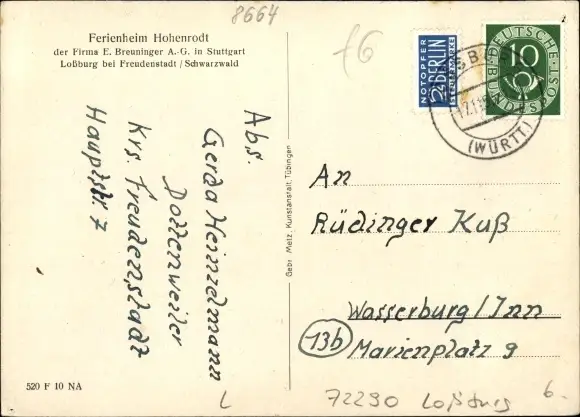 8664
Ferienheim Hohenrodt
der Firma E. Breuninger A.-G. in Stuttgart
Loßburg bei Freudenstadt / Schwarzwald
Abs.
Gerda Heinzelmann
Dottenweiler
Krs. Freudenstadt
Hauptstr. 7
520 F 10 NA
Gebr. Metz, Kunstanstalt, Tübingen
f6
NOTOPFER
2 BERLIN
STEUERMARKE
DEUTSCHE POST
10
BUNDESPOST
(WÜRTT.)
An
Rüdinger Kuß
Wasserburg/Inn
13b
Marienplatz 9
72290 Loßburg
6.-
L